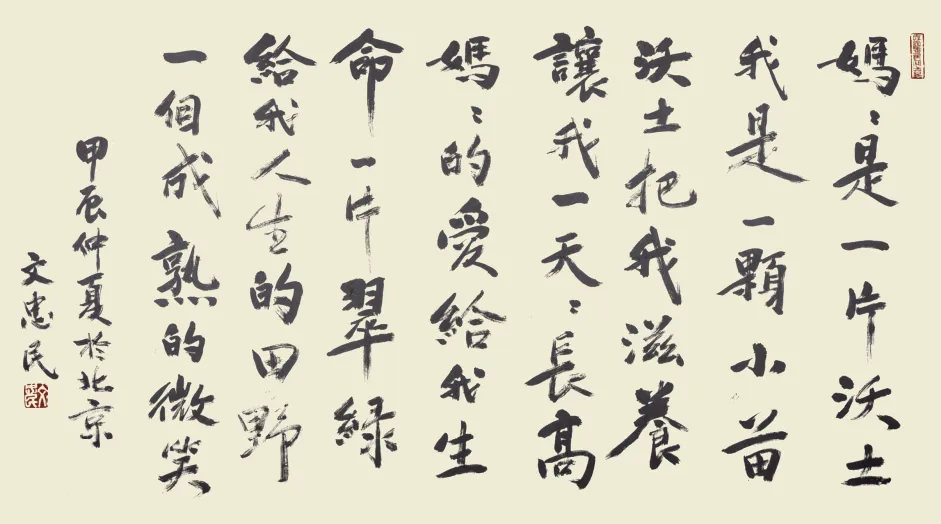 媽〻是一片沃土
我是一顆小苗
沃土把我滋養
讓我一天〻長高
媽〻的愛給我生
命一片翠綠
給我人生的田野
一個成熟的微笑
甲辰仲夏於北京
文忠民